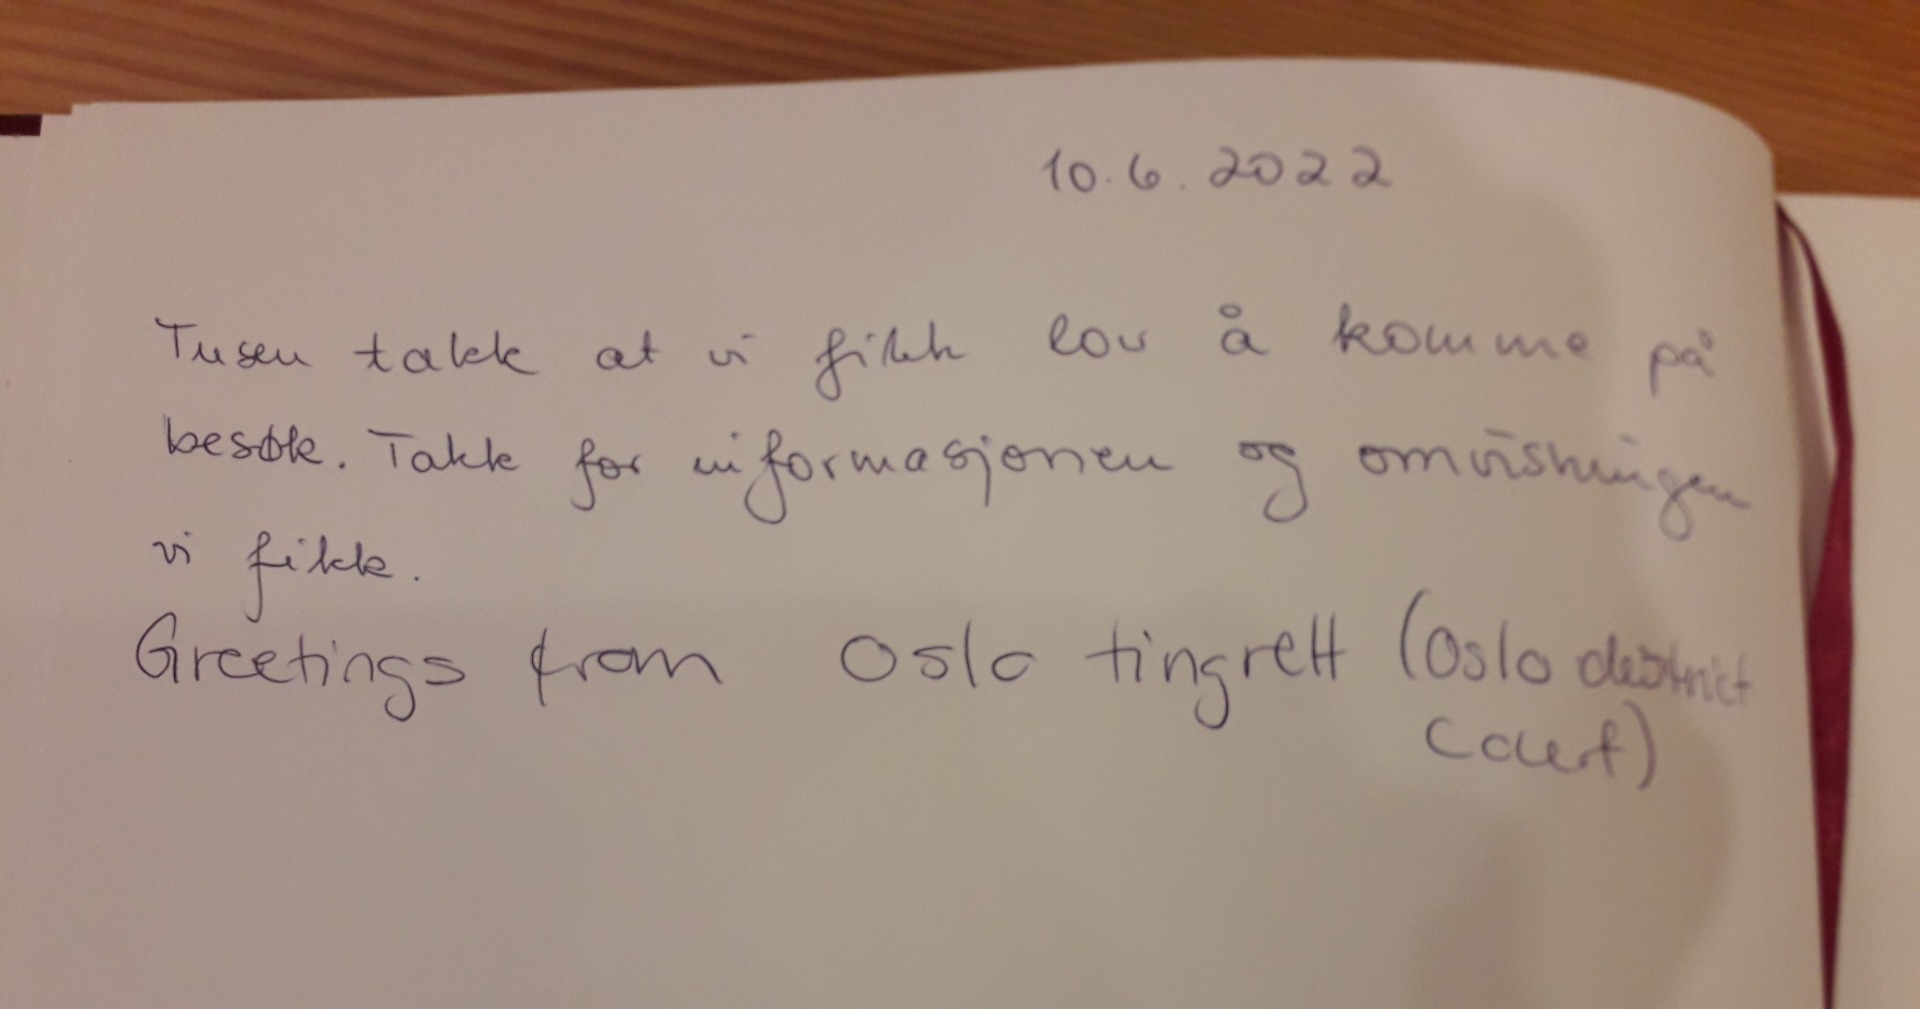 10.6.2022
Tusen takk at vi fikk lov å komme på
besøk. Takk for informasjonen og omvisningen
vi fikk.
Greetings from Oslo tingrett (Oslo district
court)